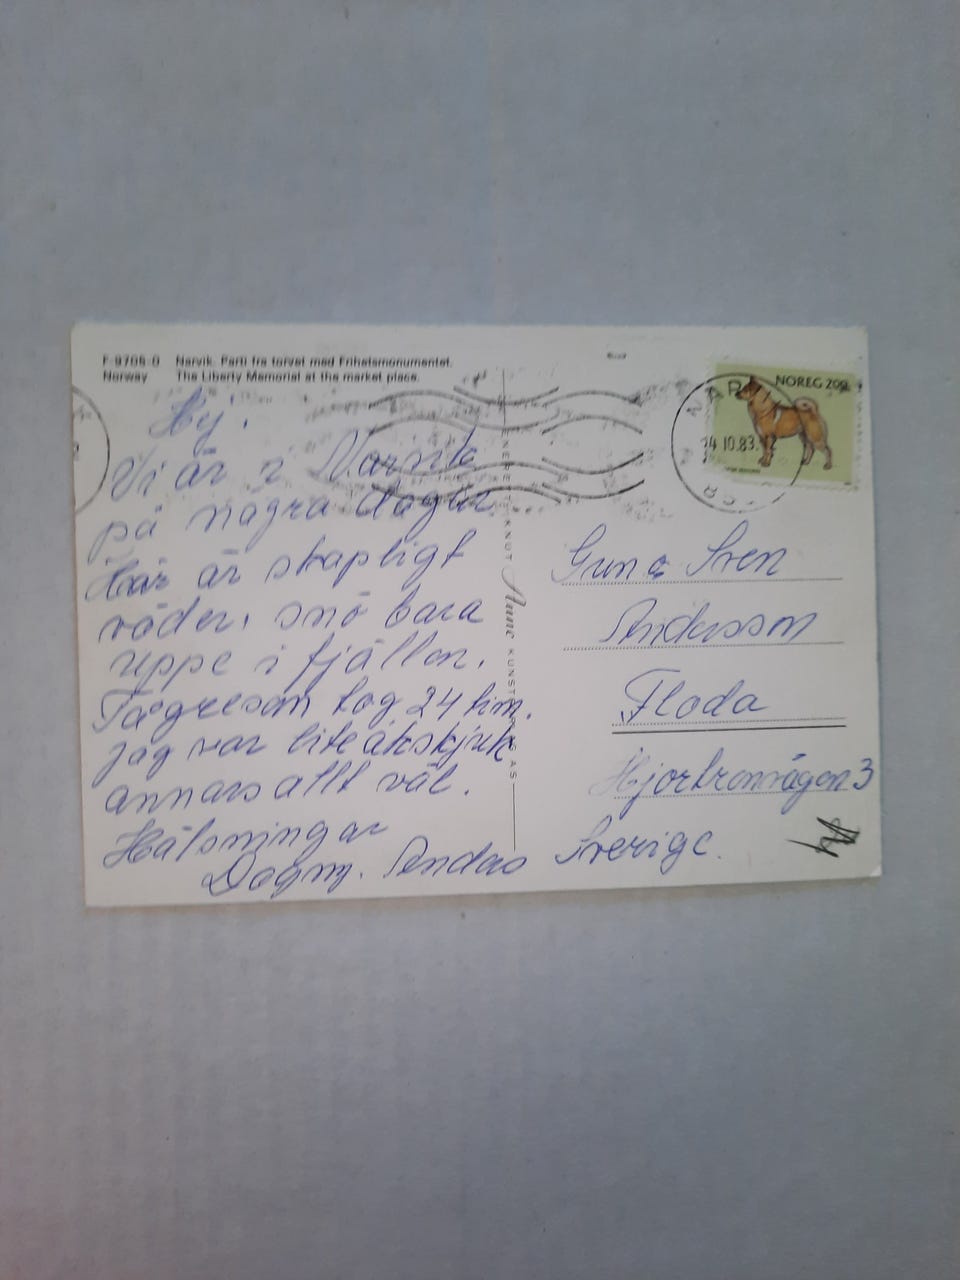 F-9705-0 Narvik. Parti fra torvet med Frihetsmonumentet.
Norway The Liberty Memorial at the market place.
Hej!
Vi är i Narvik
på några dagar.
Här är skapligt
väder, snö bara
uppe i fjällen.
Tågresan tog 24 tim.
Jag var lite åksjuk
annars allt väl.
Hälsningar
Dagny.
ENERETT: KNUT Aune KUNSTFORLAG AS
NOREG 200
NARVIK
14.10.83.12
Gun & Sven
Andersson
Floda
Hjortronvägen 3
Sverige.